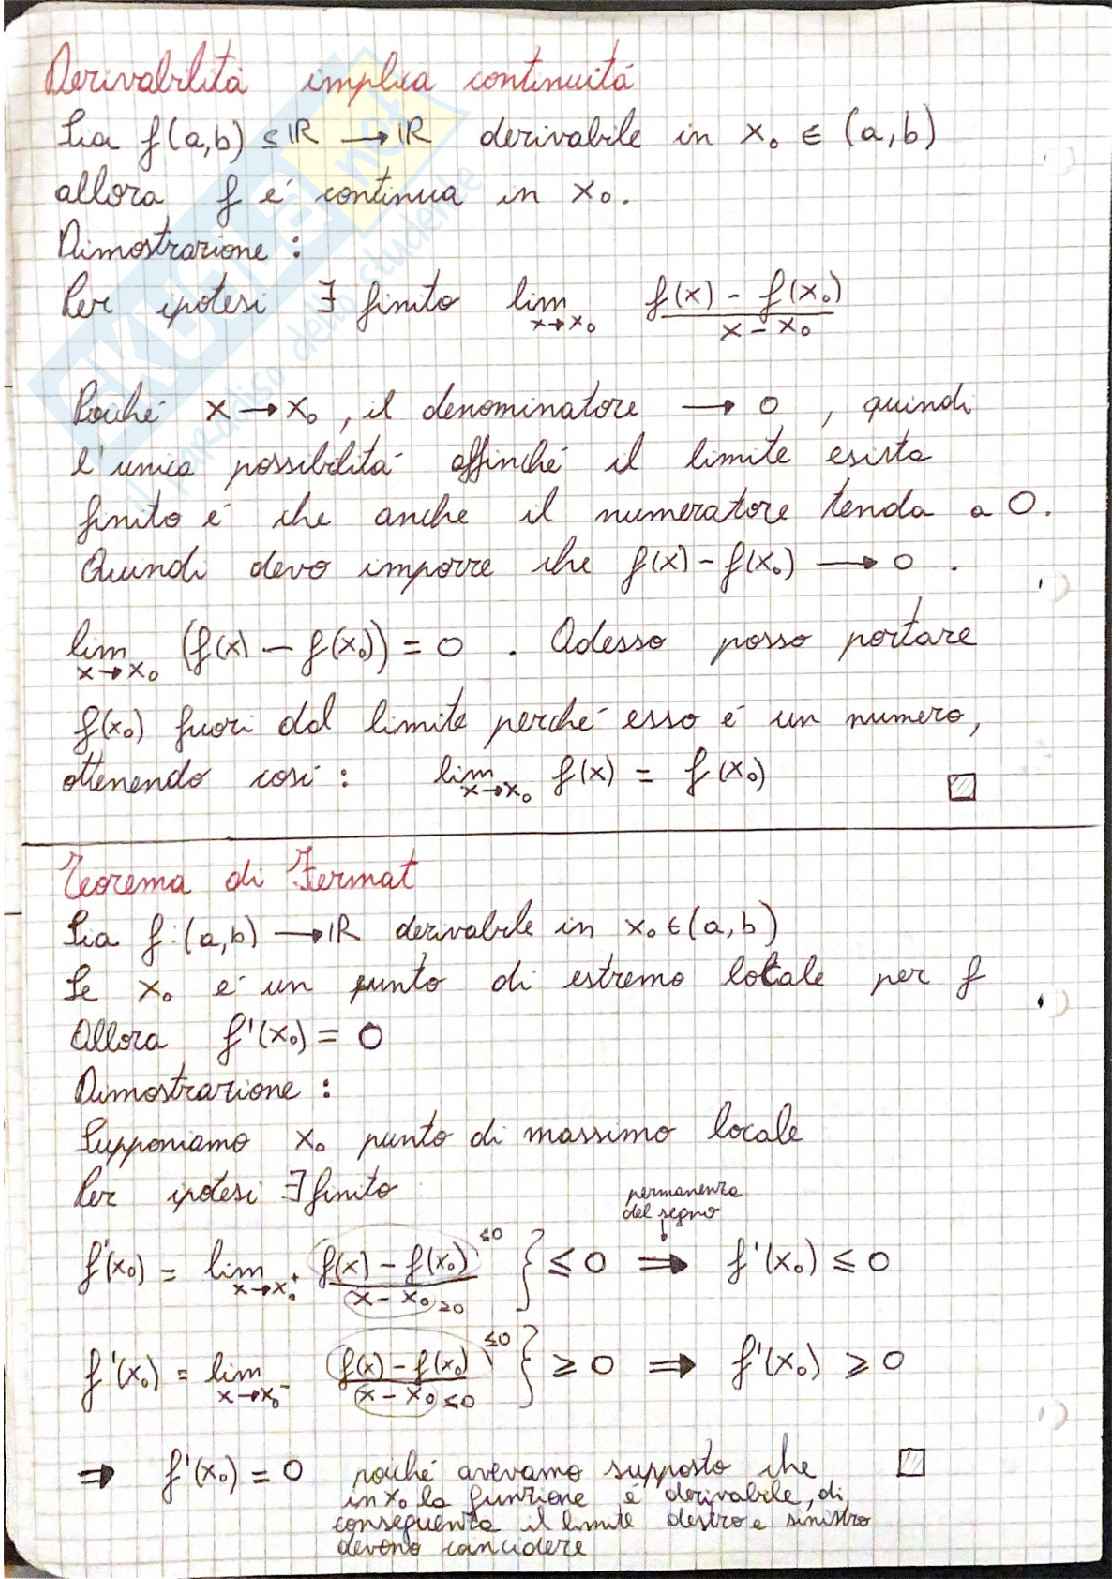 Derivabilità implica continuità
Sia f(a,b) ⊆ ℝ → ℝ derivabile in x₀ ∈ (a,b)
allora f è continua in x₀.
Dimostrazione :
Per ipotesi ∃ finito lim x→x₀ f(x) - f(x₀) / x - x₀
Poiché x → x₀, il denominatore → 0, quindi
l'unica possibilità affinché il limite esista
finito è che anche il numeratore tenda a 0.
Quindi devo imporre che f(x) - f(x₀) → 0 .
lim x→x₀ (f(x) - f(x₀)) = 0 . Adesso posso portare
f(x₀) fuori dal limite perché esso è un numero,
ottenendo così : lim x→x₀ f(x) = f(x₀) □
Teorema di Fermat
Sia f:(a,b) → ℝ derivabile in x₀ ∈ (a,b)
Se x₀ è un punto di estremo locale per f
Allora f'(x₀) = 0
Dimostrazione :
Supponiamo x₀ punto di massimo locale
Per ipotesi ∃ finito
permanenza
del segno
f'(x₀) = lim x→x₀⁺ f(x) - f(x₀) ≤0 / x - x₀ ≥0 } ≤ 0 ⇒ f'(x₀) ≤ 0
f'(x₀) = lim x→x₀⁻ f(x) - f(x₀) ≤0 / x - x₀ ≤0 } ≥ 0 ⇒ f'(x₀) ≥ 0
⇒ f'(x₀) = 0 poiché avevamo supposto che □
in x₀ la funzione è derivabile, di
conseguenza il limite destro e sinistro
devono concidere